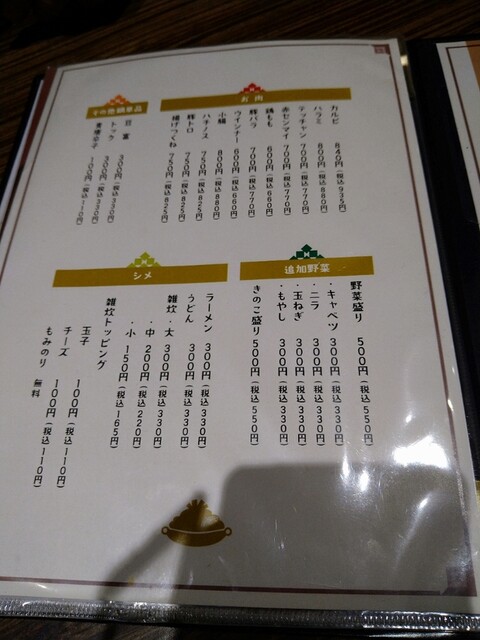 お肉
カルビ 840円(税込935円)
ハラミ 800円(税込880円)
テッチャン 700円(税込770円)
赤センマイ 700円(税込770円)
鶏もも 600円(税込660円)
豚バラ 700円(税込770円)
ウインナー 600円(税込660円)
小腸 800円(税込880円)
ハチノス 750円(税込825円)
豚トロ 750円(税込825円)
揚げつくね 750円(税込825円)
その他鍋単品
豆富 300円(税込330円)
トック 300円(税込330円)
100円(税込110円)
追加野菜
野菜盛り 500円(税込550円)
・キャベツ 300円(税込330円)
・ニラ 300円(税込330円)
・玉ねぎ 300円(税込330円)
・もやし 300円(税込330円)
きのこ盛り 500円(税込550円)
シメ
ラーメン 300円(税込330円)
うどん 300円(税込330円)
雑炊・大 300円(税込330円)
・中 200円(税込220円)
・小 150円(税込165円)
雑炊トッピング
玉子 100円(税込110円)
チーズ 100円(税込110円)
もみのり 無料